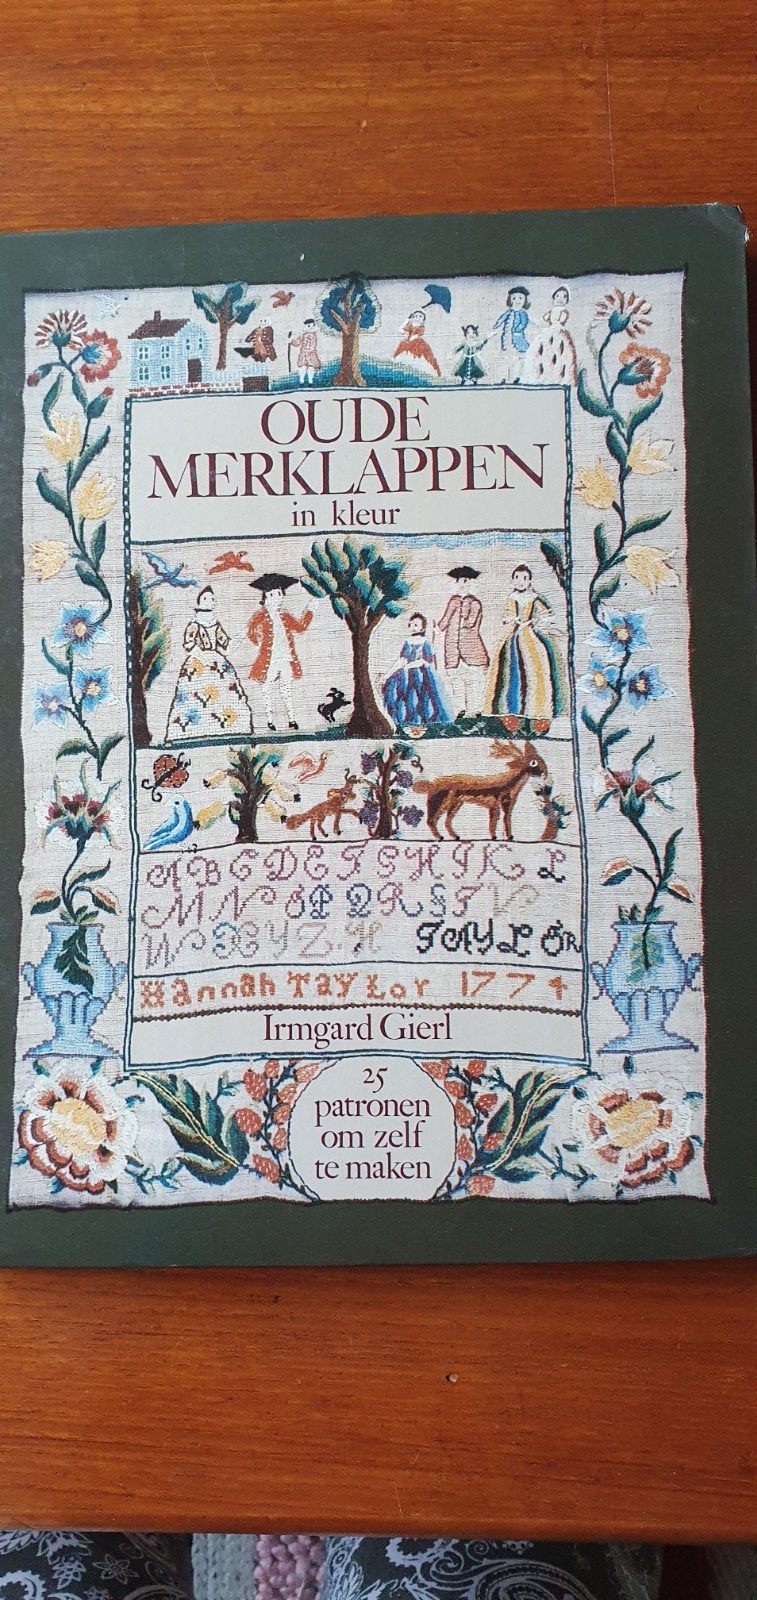 OUDE
MERKLAPPEN
in kleur
A B C D E F G H I K L
M N O P Q R S T V
W X Y Z. H TAYLOR
Hannah Taylor 1774
Irmgard Gierl
25
patronen
om zelf
te maken